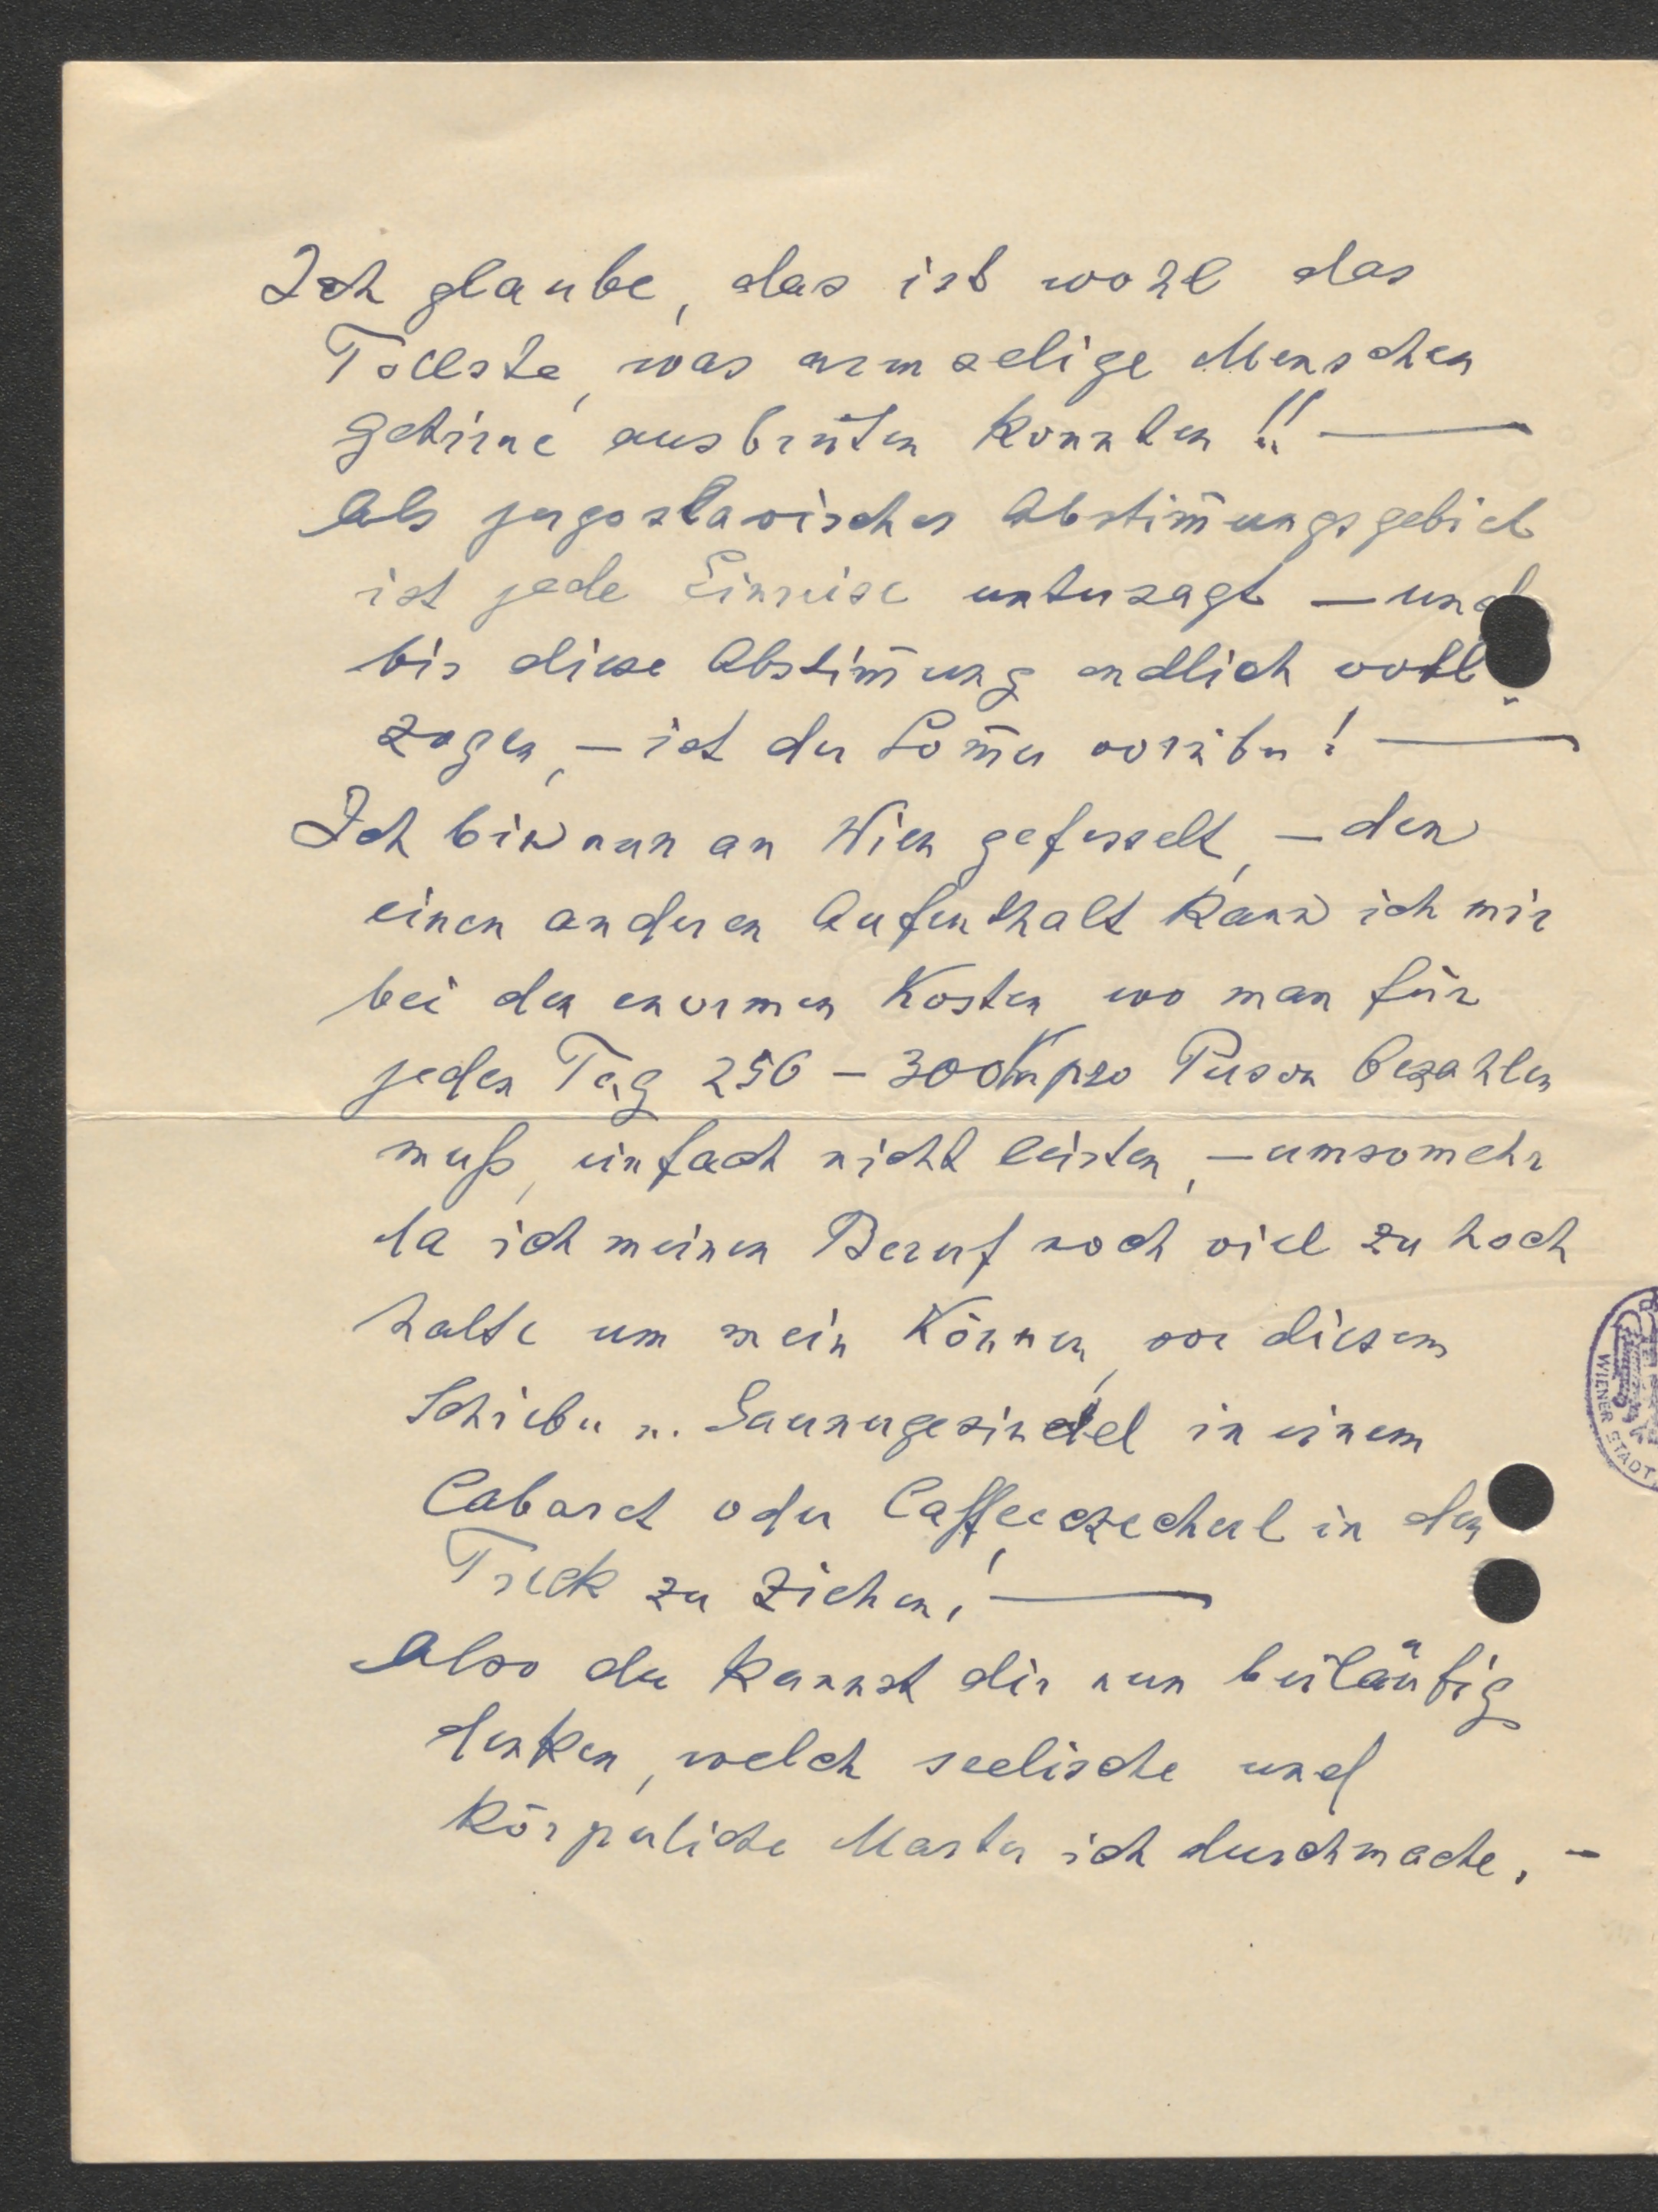 Ich glaube, das ist wohl das
Tollste, was armselige Menschen
gehirne ausbrüten konnten!! —
Als jugoslavisches Abstim̄ungsgebiet
ist jede Einreise untersagt — und
bis diese Abstim̄ung endlich voll
zogen, — ist der Som̄er vorüber! —
Ich bin nun an Wien gefesselt, — den
einen anderen Aufenthalt kann ich mir
bei den enormen Kosten, wo man für
jeden Tag 250 – 300 K pro Person bezahlen
muß, einfach nicht leisten, — umsomehr
da ich meinen Beruf noch viel zu hoch
halte um mein Können, vor diesem
Schieber u. Gaunergesindel in einem
Cabaret oder Caffeeczecherl in den
Dreck zu ziehen! —
Also du kannst dir nun beiläufig
denken, welch seelische und
körperliche Marter ich durchmache. –
WIENER STADT